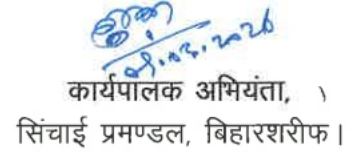 कार्यपालक अभियंता,
सिंचाई प्रमण्डल, बिहारशरीफ।